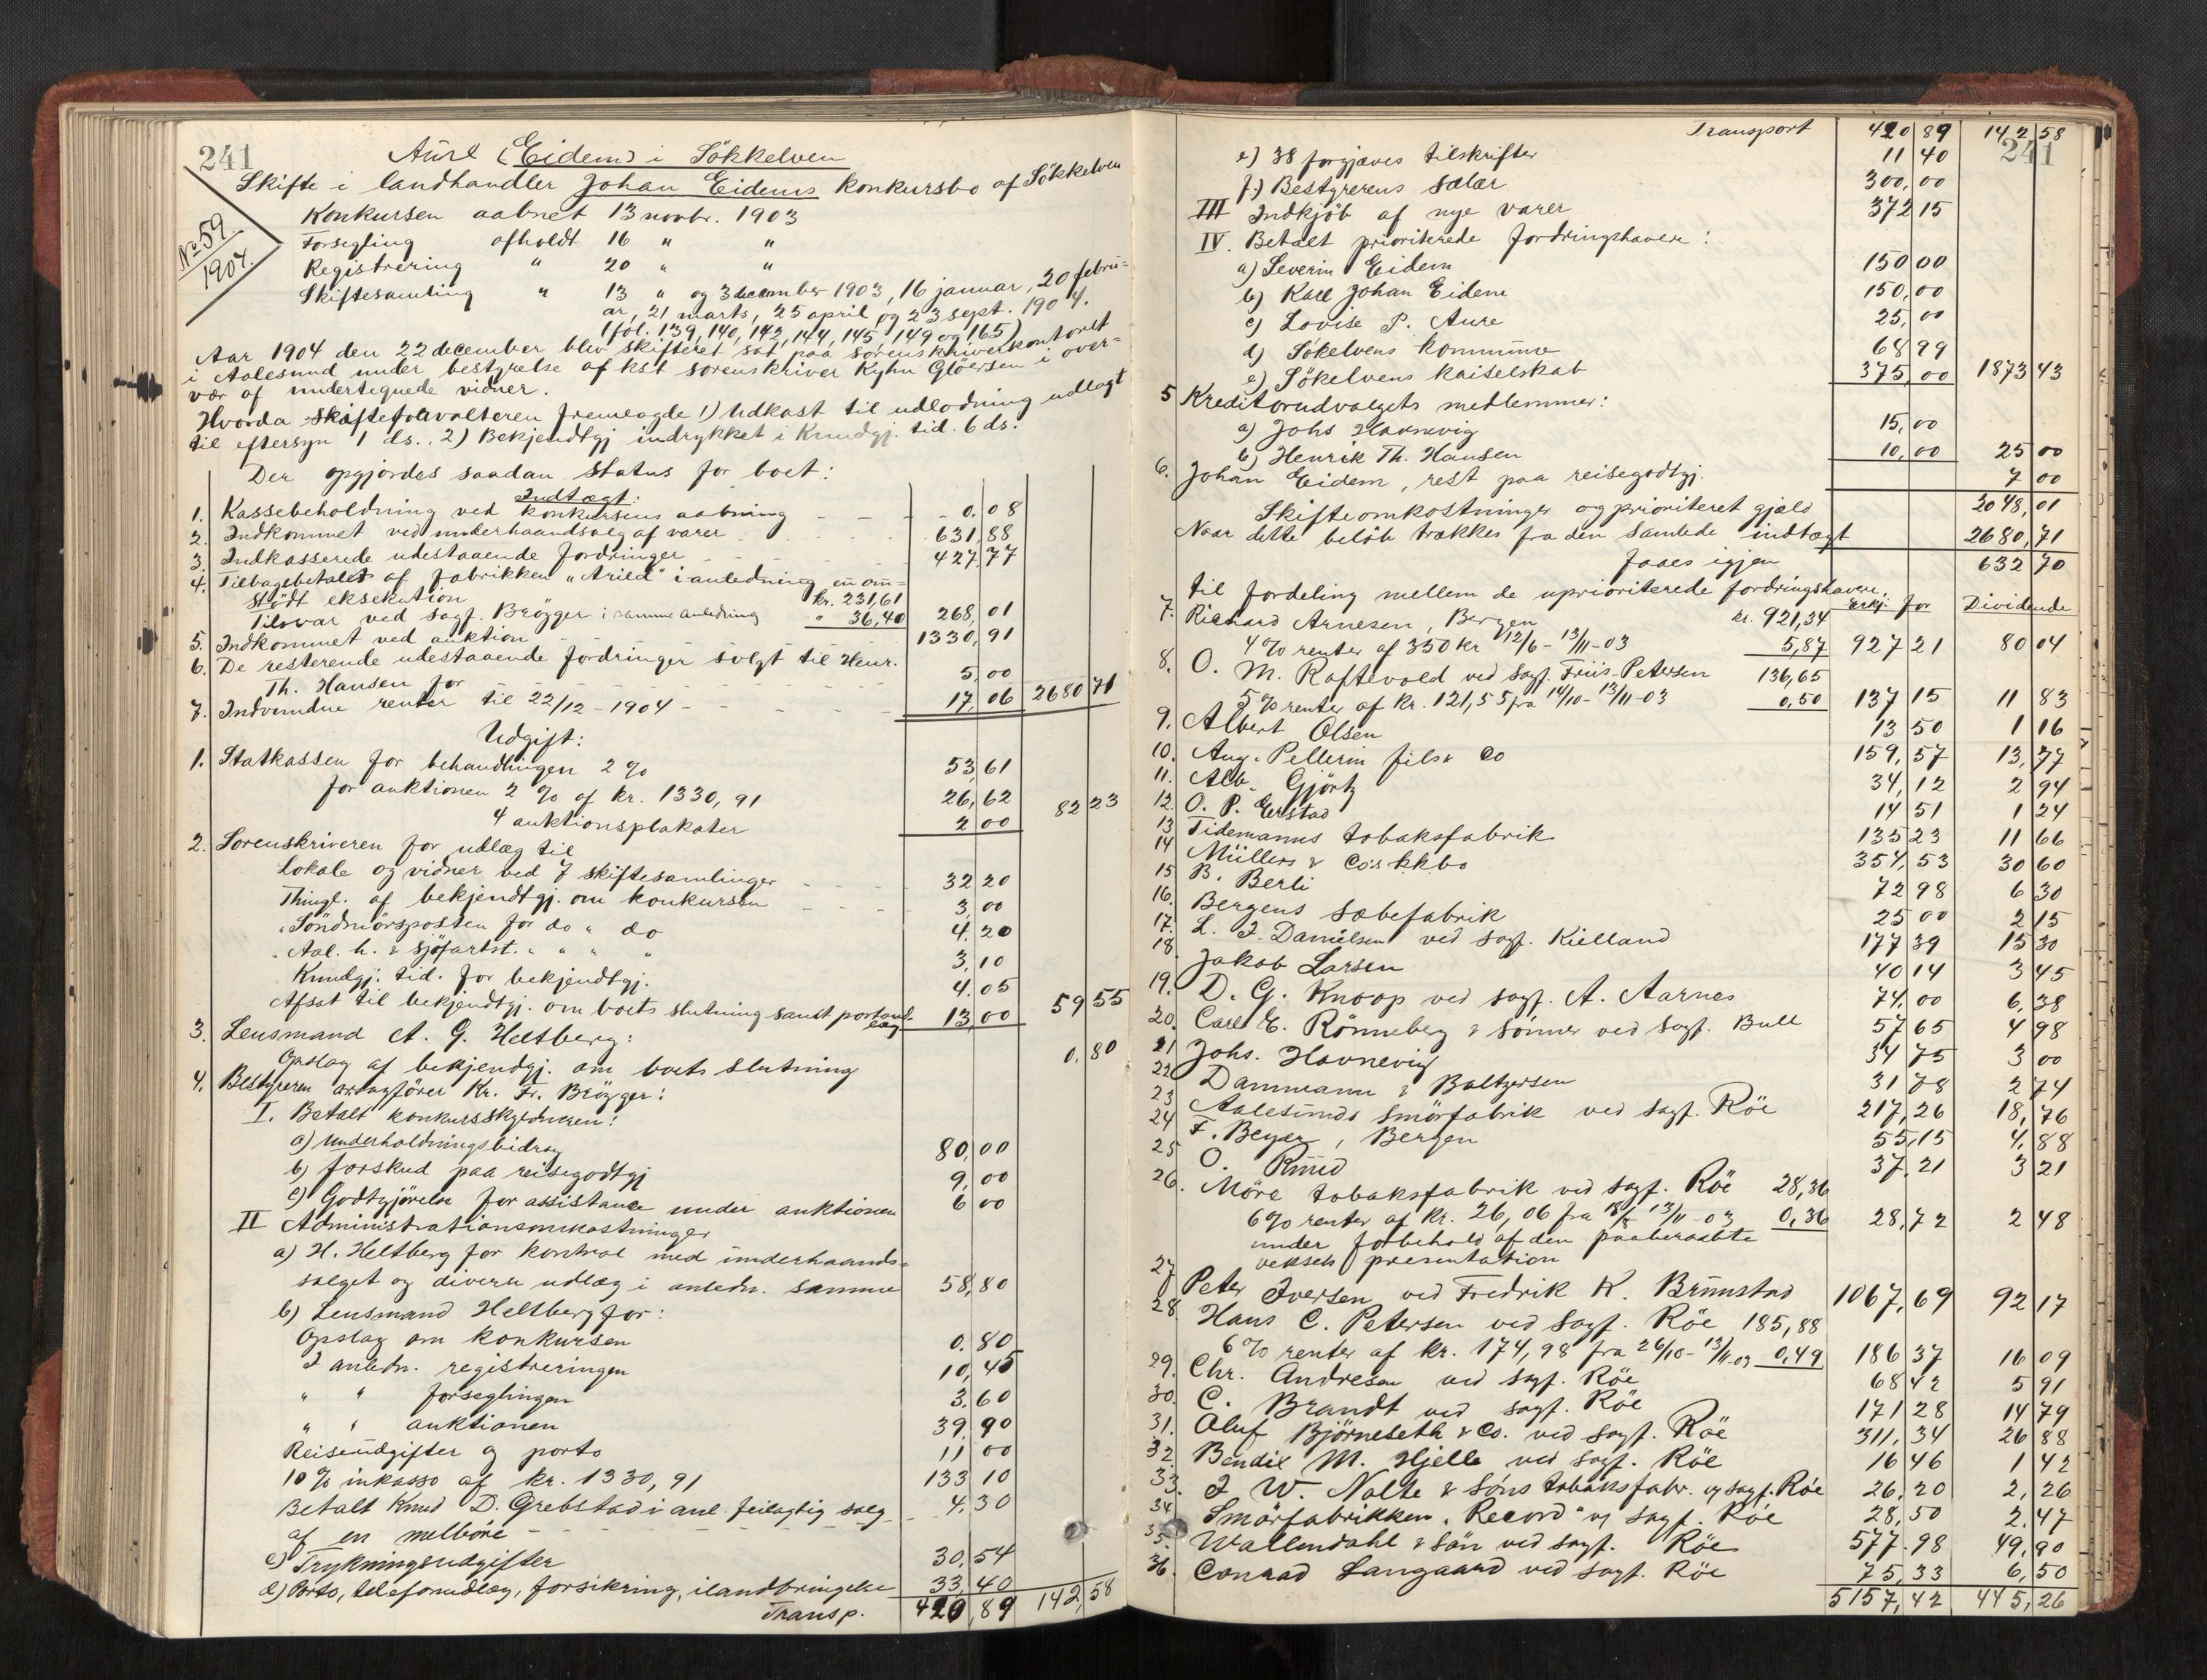 241
Aure (Eidem) i Sökkelven
Skifte i landhandler Johan Eidems konkursbo af Sökkelven
No 59/1904.
Konkursen aabnet 13 novbr. 1903
Forsegling afholdt 16 " "
Registrering " 20 " "
Skiftesamling " 13 " og 3 december 1903, 16 januar, 20 febru=
ar, 21 marts, 25 april og 23 sept. 1904.
(fol. 139, 140, 142, 144, 145, 149 og 165)
Aar 1904 den 22 december blev skifteret sat paa sorenskriverkontoret
i Aalesund under bestyrelse af kst sorenskriver Kyhn Glöersen i over=
vær af undertegnede vidner.
Hvorda skifteforvalteren fremlagde 1) Udkast til udlodning udlagt
til eftersyn 1 ds., 2) Bekjendtgj indrykket i Kundgj. tid. 6 ds.
Der opgjordes saadan status for boet:
Indtægt:
1. Kassebeholdning ved konkursens aabning 0,08
2. Indkommet ved underhaandsalg af varer 631,88
3. Indkasserede udestaaende fordringer 427,77
4. Tilbagebetalet af fabrikken "Arild" i anledning en om=
stödt eksekution kr. 231,61
Tilsvar ved sagf. Brögger i samme anledning " 36,40 268,01
5. Indkommet ved auktion 1330,91
6. De resterende udestaaende fordringer solgt til Henr.
Th. Hansen for 5,00
7. Indvundne renter til 22/12-1904 17,06 2680 71
Udgift:
1. Statkassen for behandlingen 2% 53,61
for auktionen 2% af kr. 1330,91 26,62
4 auktionsplakater 2 00 82 23
2. Sorenskriveren for udlæg til
Lokale og vidner ved 7 skiftesamlinger 32 20
Thingl. af bekjendtgj. om konkursen 3,00
" Söndmörsposten for do " do 4,20
" Aal. h. & sjöfartst. " " " 3,10
Kundgj. tid. for bekjendtgj. 4,05
Afsat til bekjendtgj. om boets slutning samt portoud-
læg 13,00 59 55
3. Lensmand A. G. Heltberg:
Opslag af bekjendgj. om boets slutning 0,80
4. Bestyreren orsagförer Kr. Fr. Brögger:
I. Betalt konkursskyldneren:
a) underholdningsbidrag 80,00
b) forskud paa reisegodtgj 9,00
c) Godtgjörelse for assistance under auktionen 6 00
II Administrationsomkostninger
a) H. Heltberg for kontrol med underhaands=
salget og diverse udlæg i anledn. samme 58,80
b) Lensmand Heltberg for:
Opslag om konkursen 0,80
I anledn. registreringen 10,45
" " forseglingen 3,60
" " auktionen 39,90
Reiseudgifter og porto 11 00
10% inkasso af kr. 1330,91 133 10
Betalt Knud D. Grebstad i anl. feilagtig salg 4,30
af en melböre
c) Trykningsudgifter 30,54
d) Porto, telefonudlæg, forsikring, ilandbringelse 33,40
Transp. 420,89 142,58
241
Transport 420 89 142 58
e) 38 forgjæves tilskrifter 11 40
f.) Bestyrerens salær 300,00
III Indkjöb af nye varer 372 15
IV. Betalt prioriterede fordringshavere:
a) Severin Eidem 150 00
b) Karl Johan Eidem 150,00
c) Lovise P. Aure 25,00
d) Sökelvens kommune 68 99
e) Sökelvens kaiselskab 375,00 1873 43
5 Kreditorudvalgets medlemmer:
a) Johs Havnevig 15,00
b) Henrik Th. Hansen 10,00 25 00
6. Johan Eidem, rest paa reisegodtgj. 7 00
Skifteomkostninger og prioriteret gjæld 2048,01
Naar dette belöb trækkes fra den samlede indtægt 2680,71
faaes igjen 632 70
til fordeling mellem de uprioriterede fordringshavere. erkj. for Dividende
7. Richard Arnesen, Bergen kr. 921,34
4% renter af 350 kr 12/6 - 13/11-03 5,87 927 21 80 04
8. O. M. Raftevold ved sagf. Friis-Petersen 136,65
5% renter af kr. 121,55 fra 14/10 - 13/11-03 0,50 137 15 11 83
9. Albert Olsen 13 50 1 16
10. Aug. Pellerin fils & Co 159,57 13,77
11. Alb. Gjörtz 34,12 2 94
12. O. P. Erstad 14 51 1 24
13 Tidemanns tobaksfabrik 135 23 11 66
14 Müllers & Co's kkbo 354,53 30 60
15 B. Berli 72 98 6 30
16. Bergens sæbefabrik 25 00 2 15
17. L. J. Danielsen ved sagf. Kielland 177 39 15 30
18. Jakob Larsen 40 14 3 45
19. D. G. Knoop ved sagf. A. Aarnes 74,00 6,38
20. Carl E. Rönneberg & sönner ved sagf. Bull 57 65 4 98
21 Johs. Havnevig 34 75 3 00
22 Dammann & Baltzersen 31 78 2 74
23 Aalesunds smörfabrik ved sagf. Röe 217,26 18,76
24 F. Beyer, Bergen 55,15 4,88
25 O. Ruud 37,21 3 21
26. Möre tobaksfabrik ved sagf. Röe 28,36
6% renter af kr. 26,06 fra 18/8 13/11-03 0,36 28,72 2 48
under forbehold af den paaberaabte
veksels presentation
27 Peter Iversen ved Fredrik K. Brunstad 1067,69 92 17
28. Hans C. Petersen ved sagf. Röe 185,88
6% renter af kr. 174,98 fra 26/10 - 13/11-03 0,49 186 37 16 09
29. Chr. Andresen ved sagf. Röe 68 42 5 91
30. C. Brandt ved sagf. Röe 171 28 14 79
31. Oluf Björneseth & Co. ved sagf. Röe 311,34 26 88
32. Bendix M. Hjelle ved sagf. Röe 16 46 1 42
33. J. W. Nolte & Söns tobaksfabr. v sagf. Röe 26,20 2,26
34 Smörfabrikken "Record" v sagf. Röe 28,50 2,47
35. Wallendahl & Sön ved sagf. Röe 577,98 49,90
36. Conrad Langaard ved sagf. Röe 75,33 6,50
5157,42 445,26